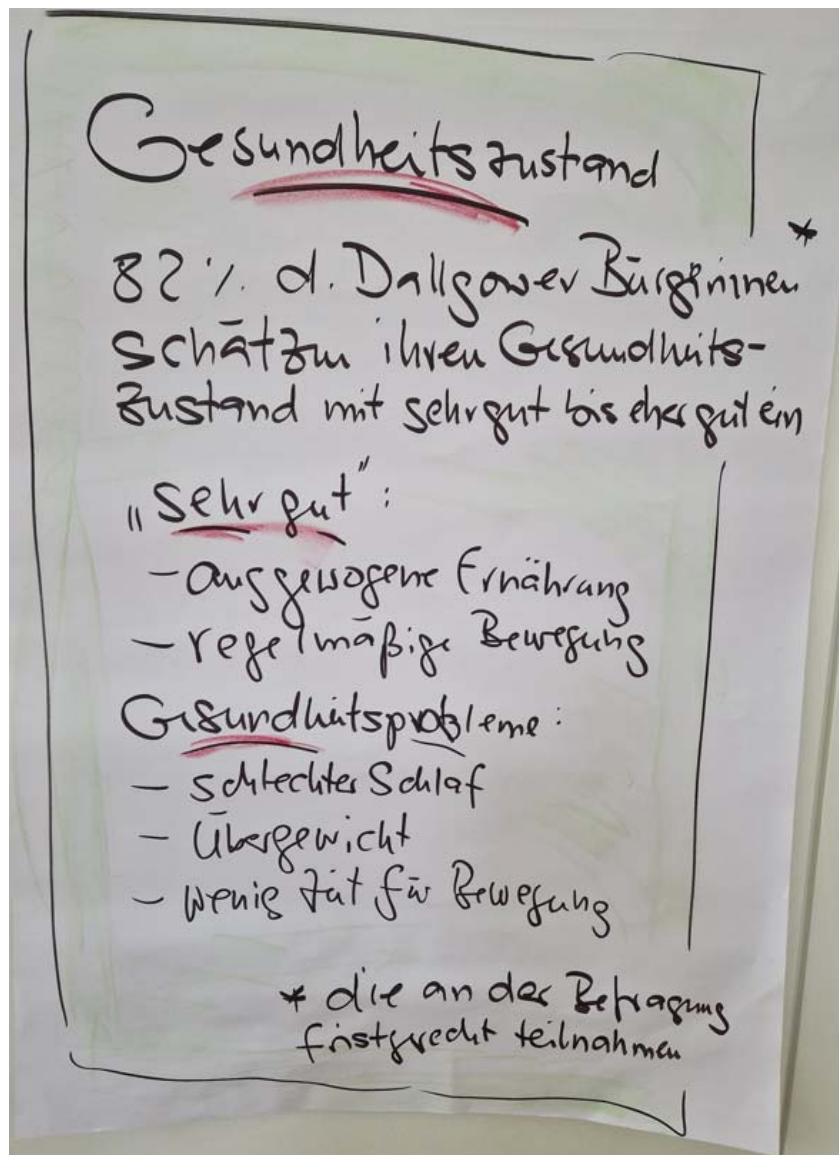 Gesundheitszustand
82 % d. Dallgower Bürgerinnen *
schätzen ihren Gesundheits-
zustand mit sehr gut bis eher gut ein
„sehr gut":
- ausgewogene Ernährung
- regelmäßige Bewegung
Gesundheitsprobleme:
- schlechter Schlaf
- Übergewicht
- wenig Zeit für Bewegung
* die an der Befragung
fristgerecht teilnahmen